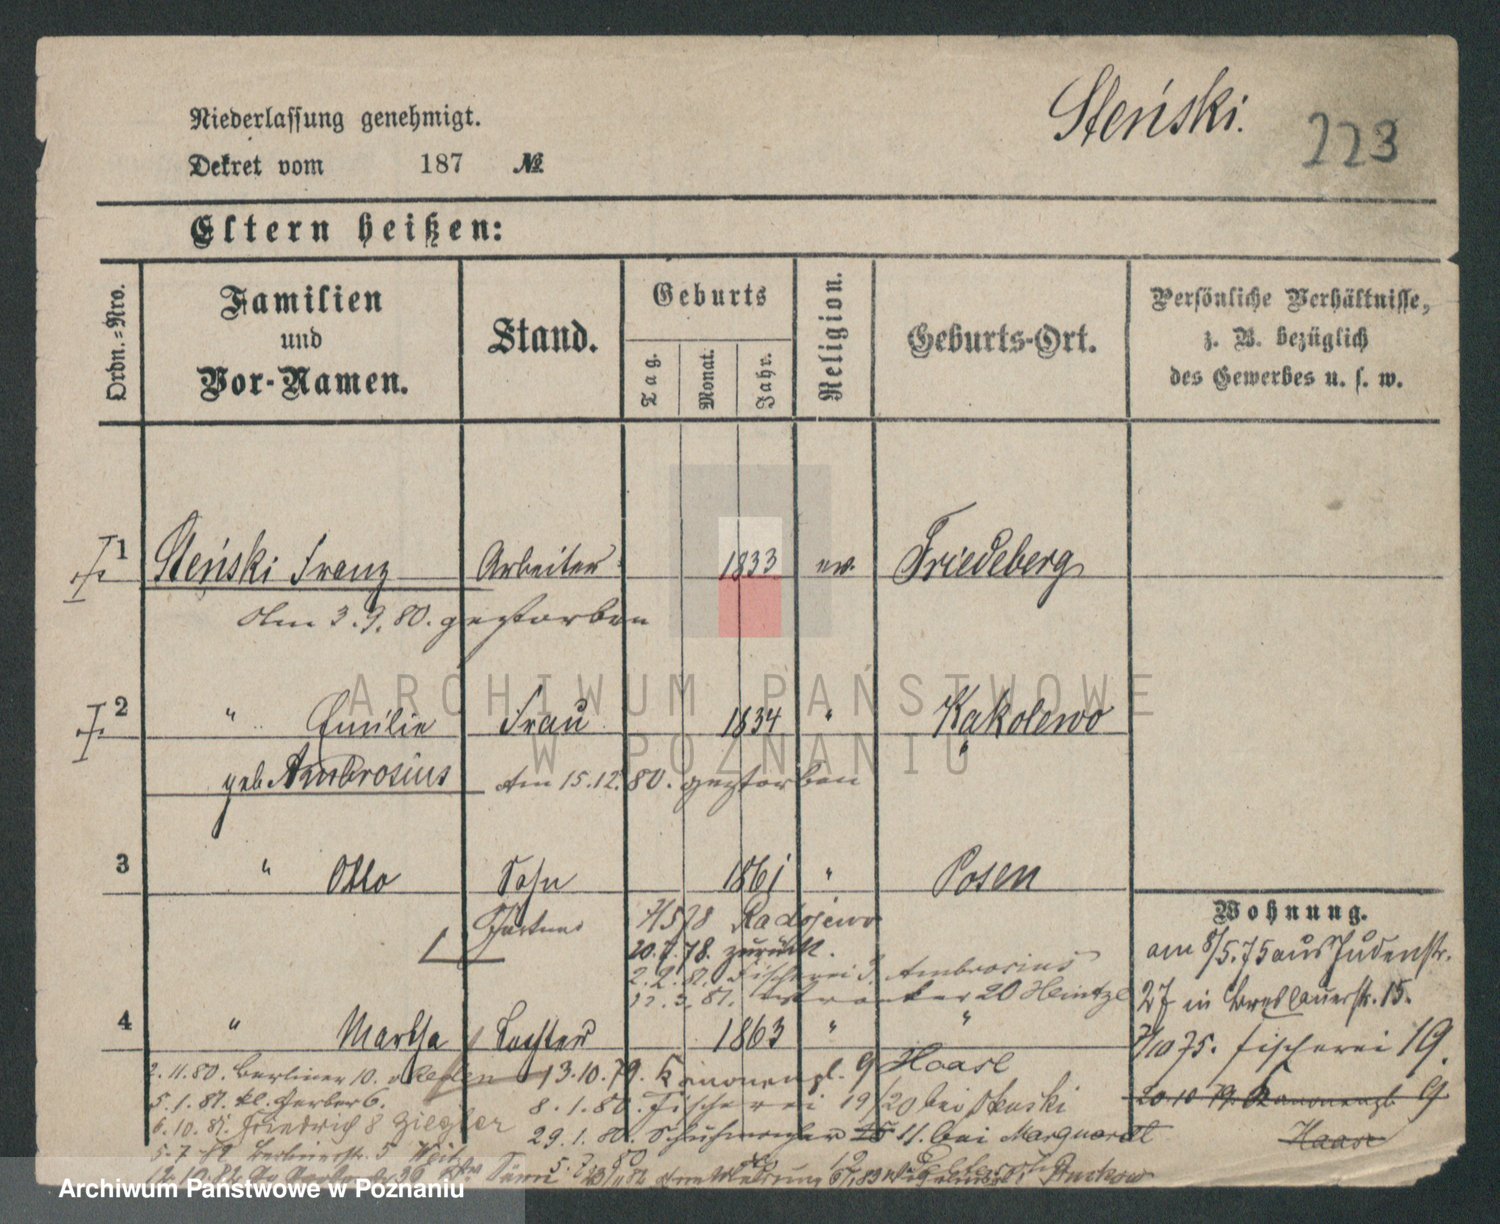 Steński.
223
Niederlassung genehmigt.
Dekret vom 187 №
Eltern heißen:
Ordn.-Nro.
Familien
und
Vor-Namen.
Stand.
Geburts
Tag.
Monat.
Jahr.
Religion.
Geburts-Ort.
Persönliche Verhältnisse,
z. B. bezüglich
des Gewerbes u. s. w.
1 Steński Franz Arbeiter 1833 ev. Friedeberg
Am 3.9.80. gestorben
ARCHIWUM PAŃSTWOWE
W POZNANIU
2 " Emilie Frau 1834 " Kakolewo
geb Ambrosius Am 15.12.80. gestorben
3 " Otto Sohn 1861 " Posen
Gärtner 78 Radojewo
20.7.78. zurück.
2.2.81. Fischerei 3. Ambrosius
12.3.81. 20 Heintze
4 " Martha Tochter 1863 " "
Wohnung.
am 8/5.75 aus Judenstr.
27 in Breslauerstr. 15.
7/10 75. Fischerei 19.
20.10 79. Kanonenpl. 9
Haase
2.11.80. Berliner 10.
5.1.81. kl. Gerber 6.
6.10.81. Friedrich 8 Ziegler
13.10.79. Kanonenpl. 9 Haase
8.1.80. Fischerei 19/20 bei Skuski
29.1.80. Schuhmacher 11. bei Marquardt
Archiwum Państwowe w Poznaniu